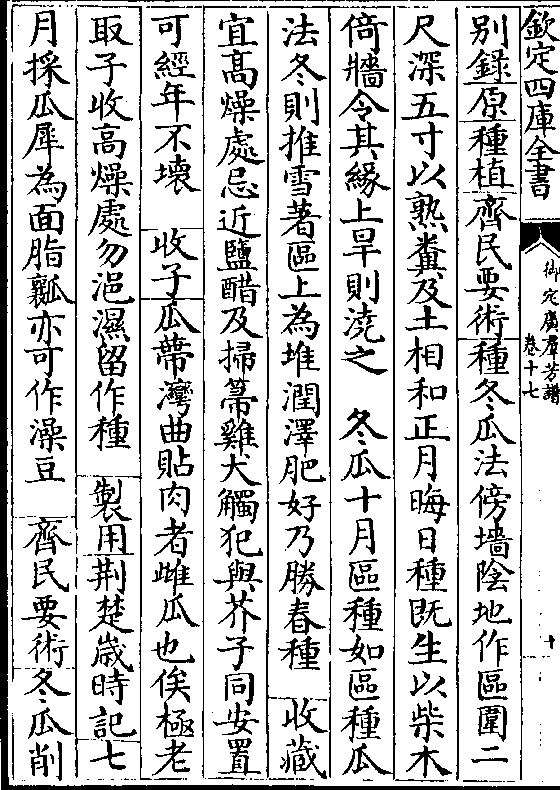 欽定四庫全書
御定廣羣芳譜
卷十七
十
別錄原種植齊民要術種冬瓜法傍墻隂地作區圍二
尺深五寸以熟糞及土相和正月晦日種既生以柴木
倚牆令其緣上旱則澆之　冬瓜十月區種如區種瓜
法冬則推雪著區上為堆潤澤肥好乃勝春種　收藏
宜高燥處忌近鹽醋及掃箒雞犬觸犯與芥子同安置
可經年不壞　收子瓜蔕灣曲貼肉者雌瓜也俟極老
取子收高燥處勿浥濕留作種　製用荆楚歲時記七
月採瓜犀為面脂瓤亦可作澡豆　齊民要術冬瓜削